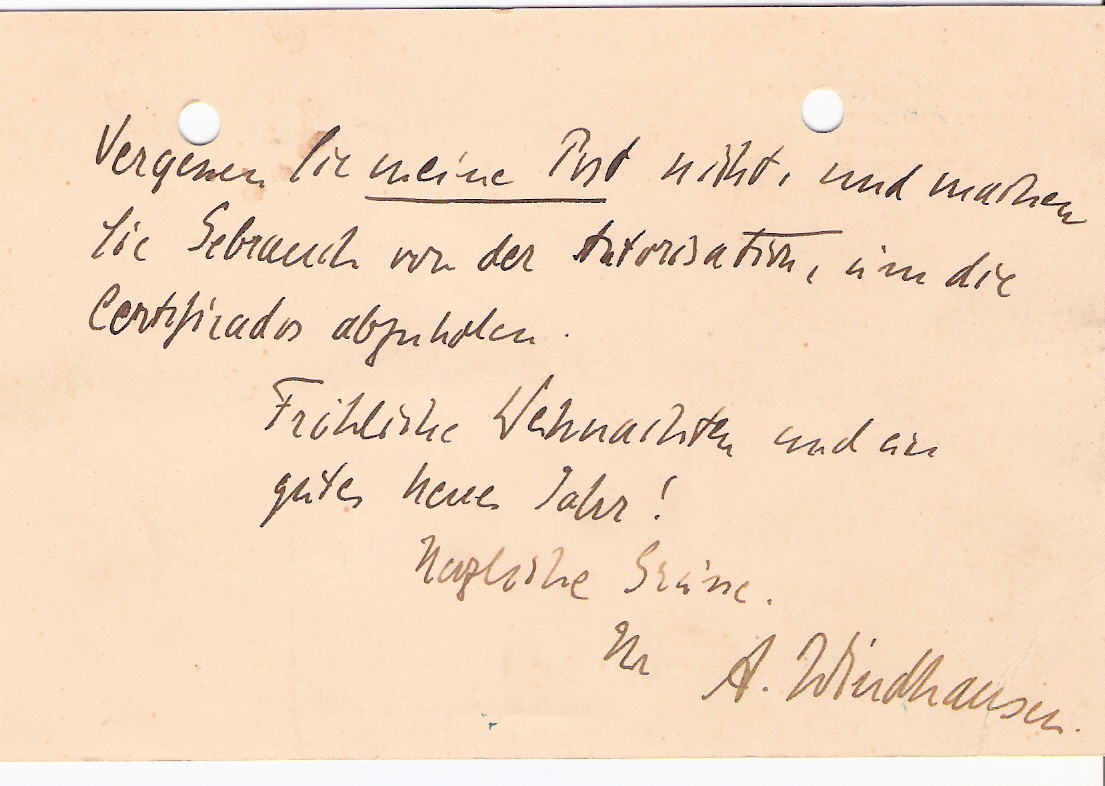 Vergessen Sie meine Post nicht, und machen
Sie Gebrauch von der Autorisation, um die
Certificados abzuholen.
Fröhliche Weihnachten und ein
gutes neues Jahr!
Herzliche Grüsse.
Ihr A. Windhausen.